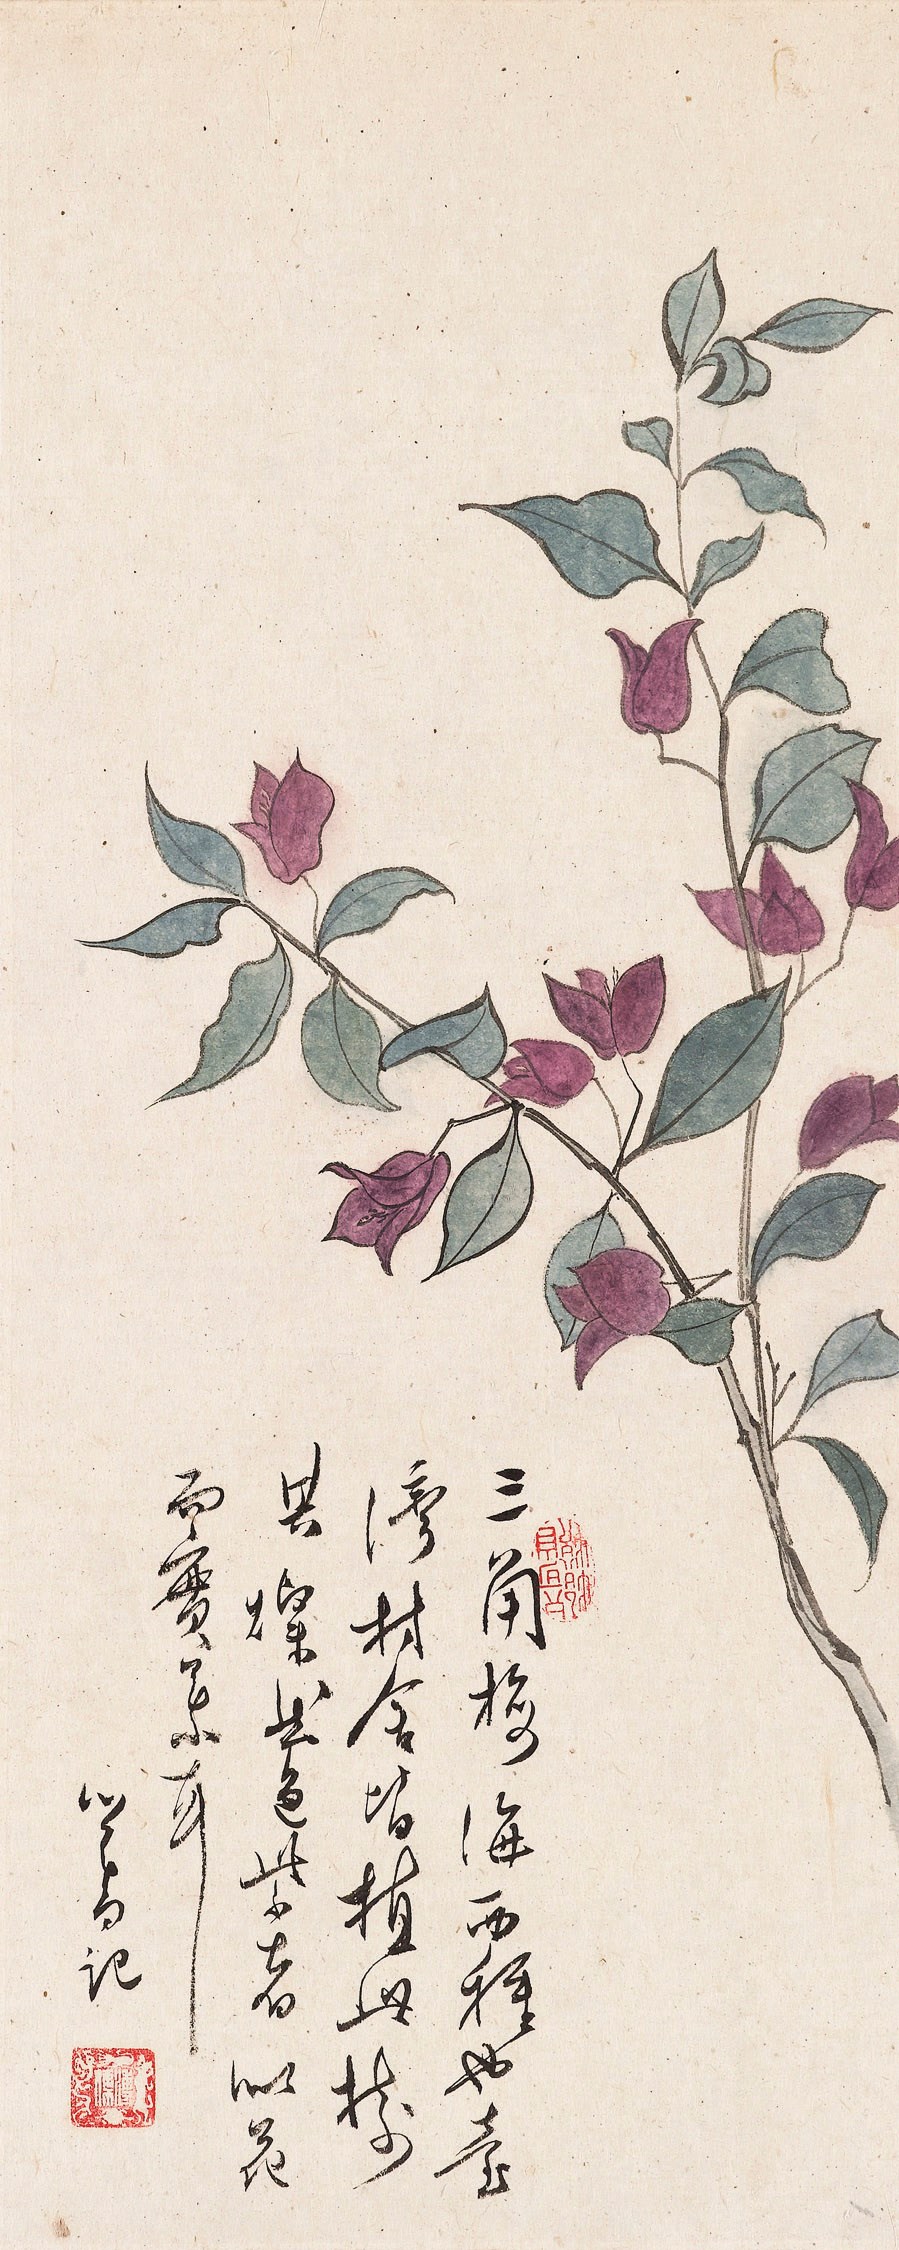 三角梅海西種也臺
灣村舍皆植此樹
其燦然色紫者似花
而實葉耳
心畬記